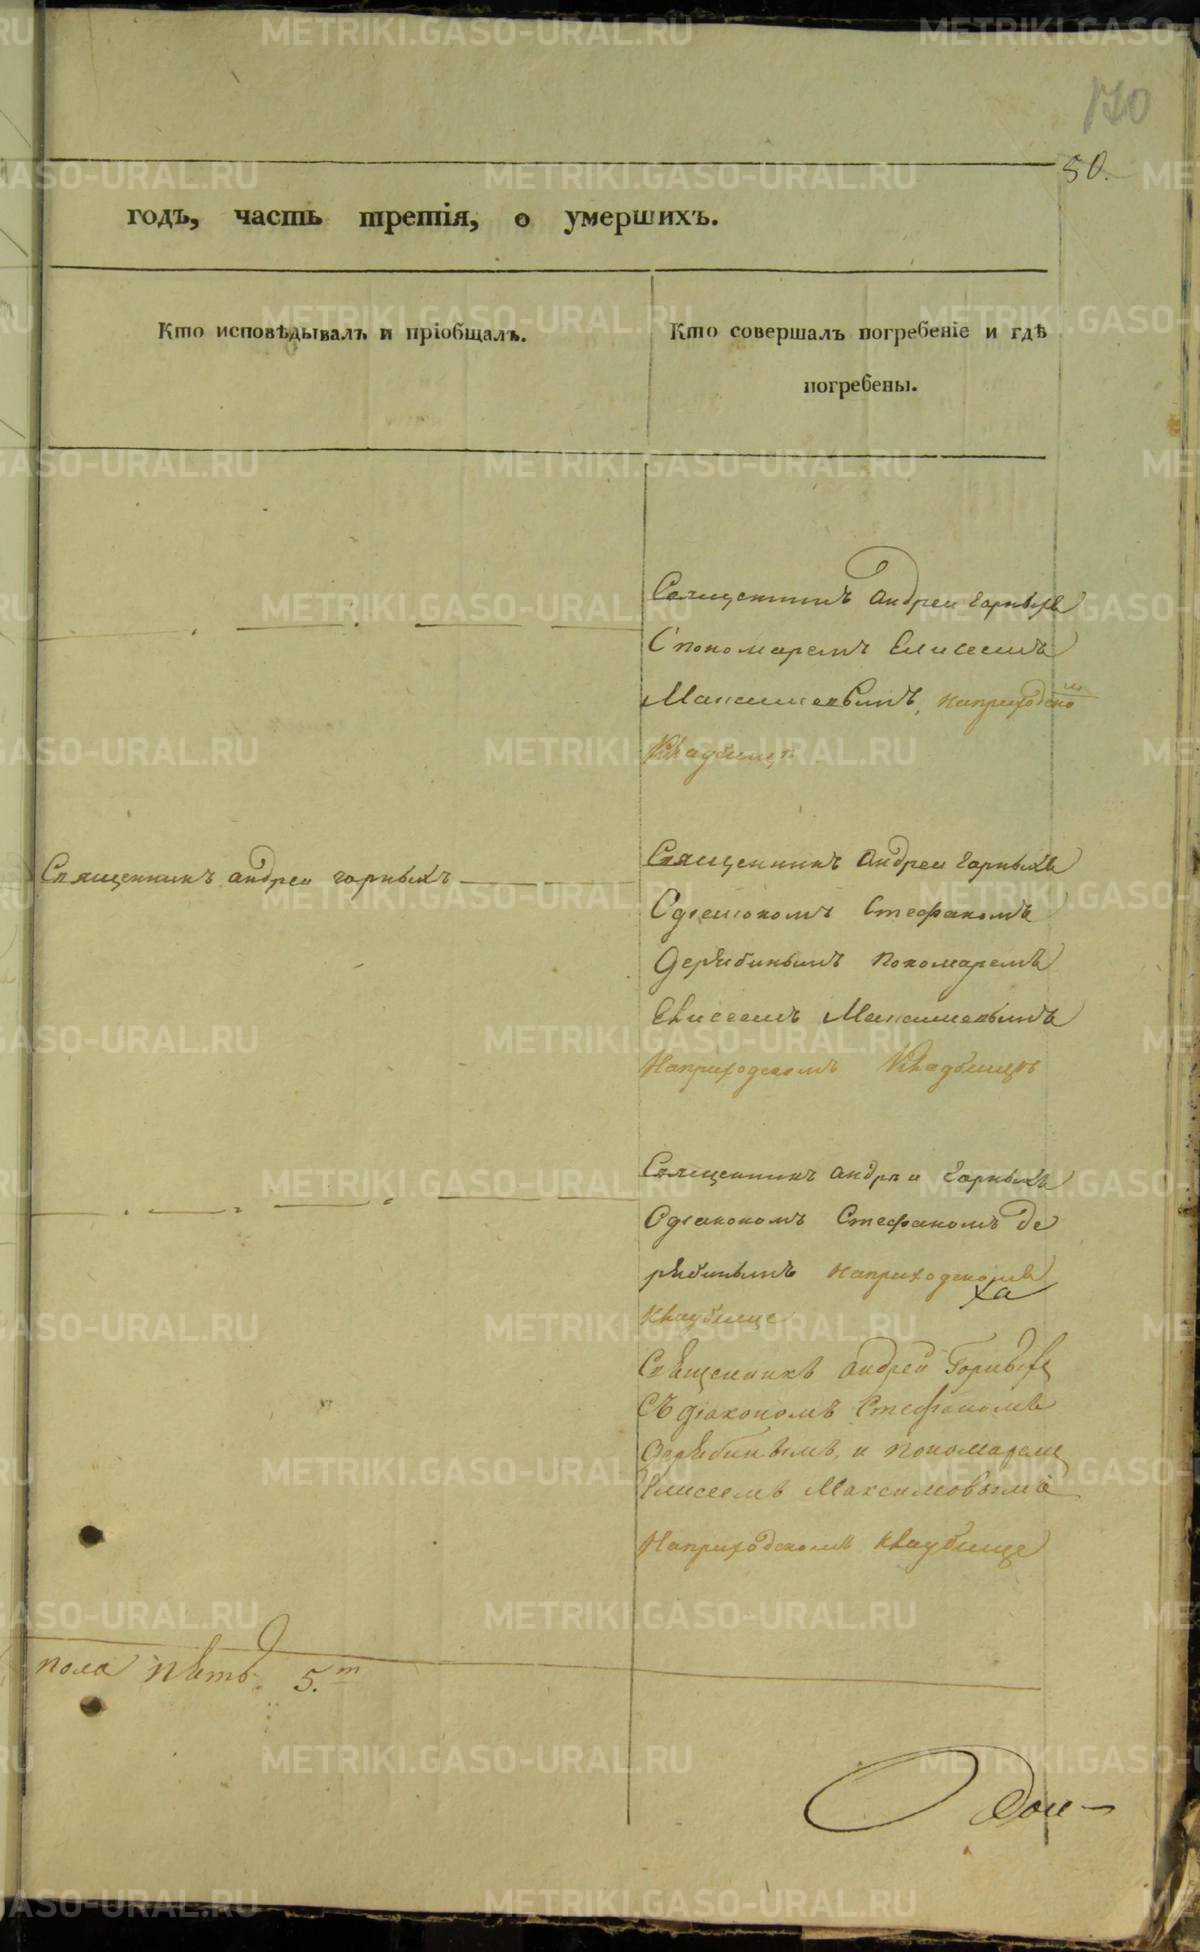 170
50.
годъ, часть третія, о умершихъ.
Кто исповѣдывалъ и пріобщалъ.
Кто совершалъ погребеніе и гдѣ
погребены.
Священникъ Андреи Горныхъ
С пономаремъ Елисеемъ
Максимовымъ, на приходском
кладбищѣ
Священникъ Андреи Горныхъ
Священникъ Андреи Горныхъ
С діакономъ Стефаномъ
Дерябинымъ пономаремъ
Елисеемъ Максимовымъ
На приходскомъ кладбищѣ
Священникъ Андреи Горныхъ
С діакономъ Стефаномъ Де
рябинымъ на приходскомъ
кладбище
Священникъ Андрей Горныхъ
Съ діакономъ Стефаномъ
Дерябинымъ, и пономарем
Елисеемъ Максимовымъ
На приходскомъ кладбище
пола пять. 5.т
METRIKI.GASO-URAL.RU